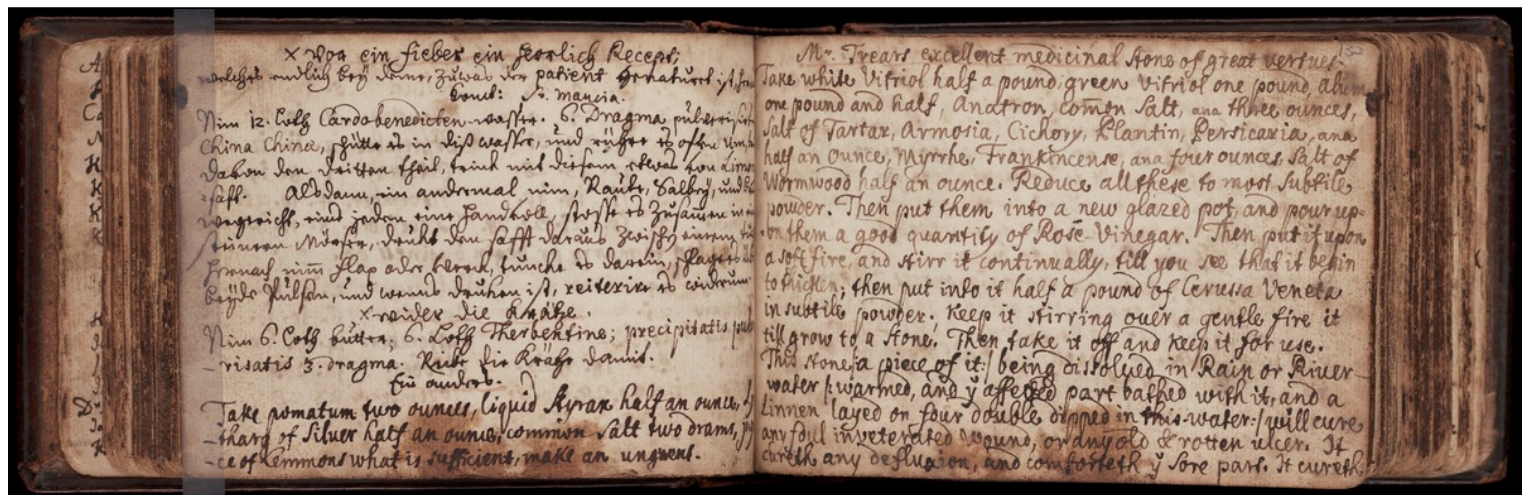 x Vor ein fieber ein herrlich Recept;
welches endlich bey deme, zuwas der patient genaturet ist,
Comt: St. Mancia.
Nim 12. Loth Cardobenedicten-wasser. 6. Dragma pulverisirte
China Chinæ, schütte es in diß wasser, und rühre es offt um,
davon den dritten theil, trink mit diesem etwas von Limo
=safft. Alsdann ein andermal nim, Raute, Salbey, und
wegerich, eins jeden eine handvoll, stosse es zusamen in
Mörser, drukt den safft daraus zwischen einem
hernach nimm flax oder werck, tuncke es darein, schlage es
beyde Pulsen, und wenns druken ist, reiterire es widerum
x wider die Krätze.
Nim 6. Loth butter; 6. Loth Therbentine; precipitatis pul
-risatis 3. dragma. Reibe die Krätze damit.
Ein anders.
Take pomatum two ounces, liquid Styrax half an ounce,
-tharg of Silver half an ounce, common Salt two drams,
-ce of Lemmons what is sufficient, make an unguent.
Mr. Trears excellent medicinal stone of great vertues.
Take white Vitriol half a pound, green vitriol one pound, Alum
one pound and half, Anatron, comon Salt, ana three ounces,
Salt of Tartar, Armosia, Cichory, Plantin, Persicaria, ana
half an Ounce, Myrrhe, Frankincense, ana four ounces, Salt of
Wormwood half an ounce. Reduce all these to most subtile
powder. Then put them into a new glazed pot, and pour up=
-on them a good quantity of Rose-Vinegar. Then put it upon
a soft fire, and stirr it continually, till you see that it begin
to thicken; then put into it half a pound of Cerussa Veneta
in subtile powder. Keep it stirring over a gentle fire it
till grow to a Stone. Then take it off and keep it for use.
This Stone/: a piece of it:/ being dissolved in Rain or River-
water /: warmed, and ẏ affected part bathed with it, and a
Linnen layed on four double dipped in this-water:/ will cure
any foul inveterated wound, or any old & rotten ulcer. It
cureth any defluxion, and comforteth ẏ sore part. It cureth